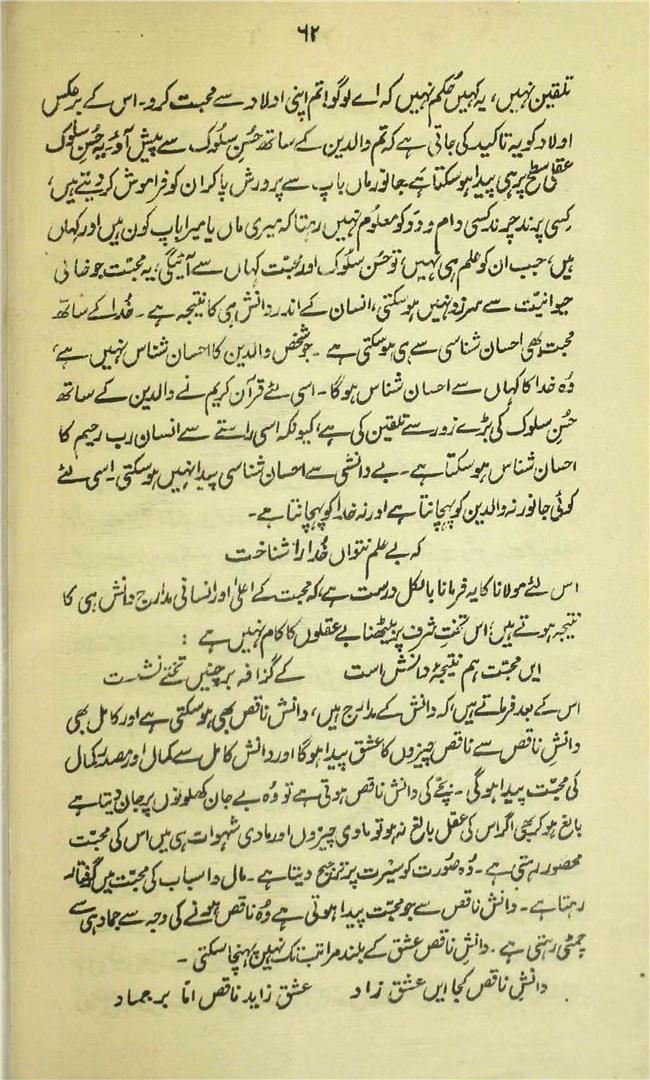 ۶۲
تلقین نہیں، یہ کہیں حکم نہیں کہ اے لوگو! تم اپنی اولاد سے محبت کرو۔ اس کے برعکس
اولاد کو یہ تاکید کی جاتی ہے کہ تم والدین کے ساتھ حُسنِ سلُوک سے پیش آؤ، یہ حُسنِ سلُوک
عقلی سطح پر ہی پیدا ہو سکتا ہے۔ جانور ماں باپ سے پرورش پا کر ان کو فراموش کر دیتے ہیں،
کِسی پرند چرند کسی دام و دَد کو معلُوم نہیں رہتا کہ میری ماں یا میرا باپ کون ہیں اور کہاں
ہیں، جب ان کو علم ہی نہیں، تو حُسن سلُوک اور محبّت کہاں سے آئیگی، یہ محبّت جو خالی
حیوانیّت سے سرزد نہیں ہو سکتی، انسان کے اندر دانش ہی کا نتیجہ ہے۔ خُدا کے ساتھ
محبت بھی احسان شناسی سے ہی ہو سکتی ہے۔ جو شخص والدین کا احسان شناس نہیں ہے،
وُہ خدا کا کہاں سے احسان شناس ہو گا۔ اسی لئے قرآن کریم نے والدین کے ساتھ
حُسنِ سلوک کی بڑے زور سے تلقین کی ہے، کیونکہ اسی راستے سے انسان رب رحیم کا
احسان شناس ہو سکتا ہے۔ بے دانشی سے احسان شناسی پیدا نہیں ہو سکتی۔ اسی لئے
کوئی جانور نہ والدین کو پہچانتا ہے اور نہ خدا کو پہچانتا ہے۔
کہ بے علم نتواں خُدا را شناخت
اس لئے مولانا کا یہ فرمانا بالکل درست ہے، کہ محبت کے اعلیٰ اور انسانی مدارج دانش ہی کا
نتیجہ ہوتے ہیں؛ اس تختِ شرف پر بیٹھنا بے عقلوں کا کام نہیں ہے :
ایں محبّت ہم نتیجۂ دانش است کے گزافہ بر چنیں تختے نشست
اس کے بعد فرماتے ہیں، کہ دانش کے مدارج ہیں، دانش ناقص بھی ہو سکتی ہے اور کامل بھی
دانشِ ناقص سے ناقص چیزوں کا عشق پیدا ہو گا اور دانش کامل سے کمال اور مصدرِ کمال
کی محبّت پیدا ہو گی۔ بچّے کی دانش ناقص ہوتی ہے تو وُہ بے جان کھلونوں پر جان دیتا ہے
بالغ ہو کر بھی اگر اس کی عقل بالغ نہ ہو تو مادی چیزوں اور مادی شہوات ہی میں اس کی محبّت
محصور رہتی ہے۔ وُہ صُورت کو سیرت پر ترجیح دیتا ہے۔ مال و اسباب کی محبّت میں گرفتار
رہتا ہے۔ دانش ناقص سے جو محبّت پیدا ہوتی ہے وُہ ناقص ہونے کی وجہ سے جماد ہی سے
چمٹی رہتی ہے۔ دانشِ ناقص عشق کے بلند مراتب تک نہیں پہنچا سکتی۔
دانشِ ناقص کجا ایں عشق زاد عشق زاید ناقص امّا بر جماد